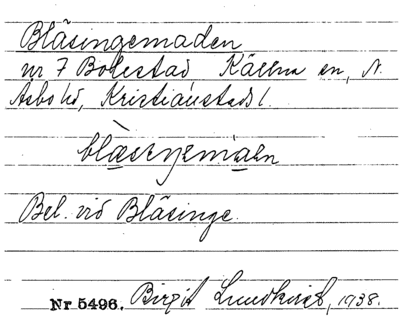 Bläsingemaden
nr 7 Bolestad Källna sn, N.
Åsbo hd, Kristianstads l.
Bel. vid Bläsinge.
Nr 5496. Birgit Lundkvist, 1938.